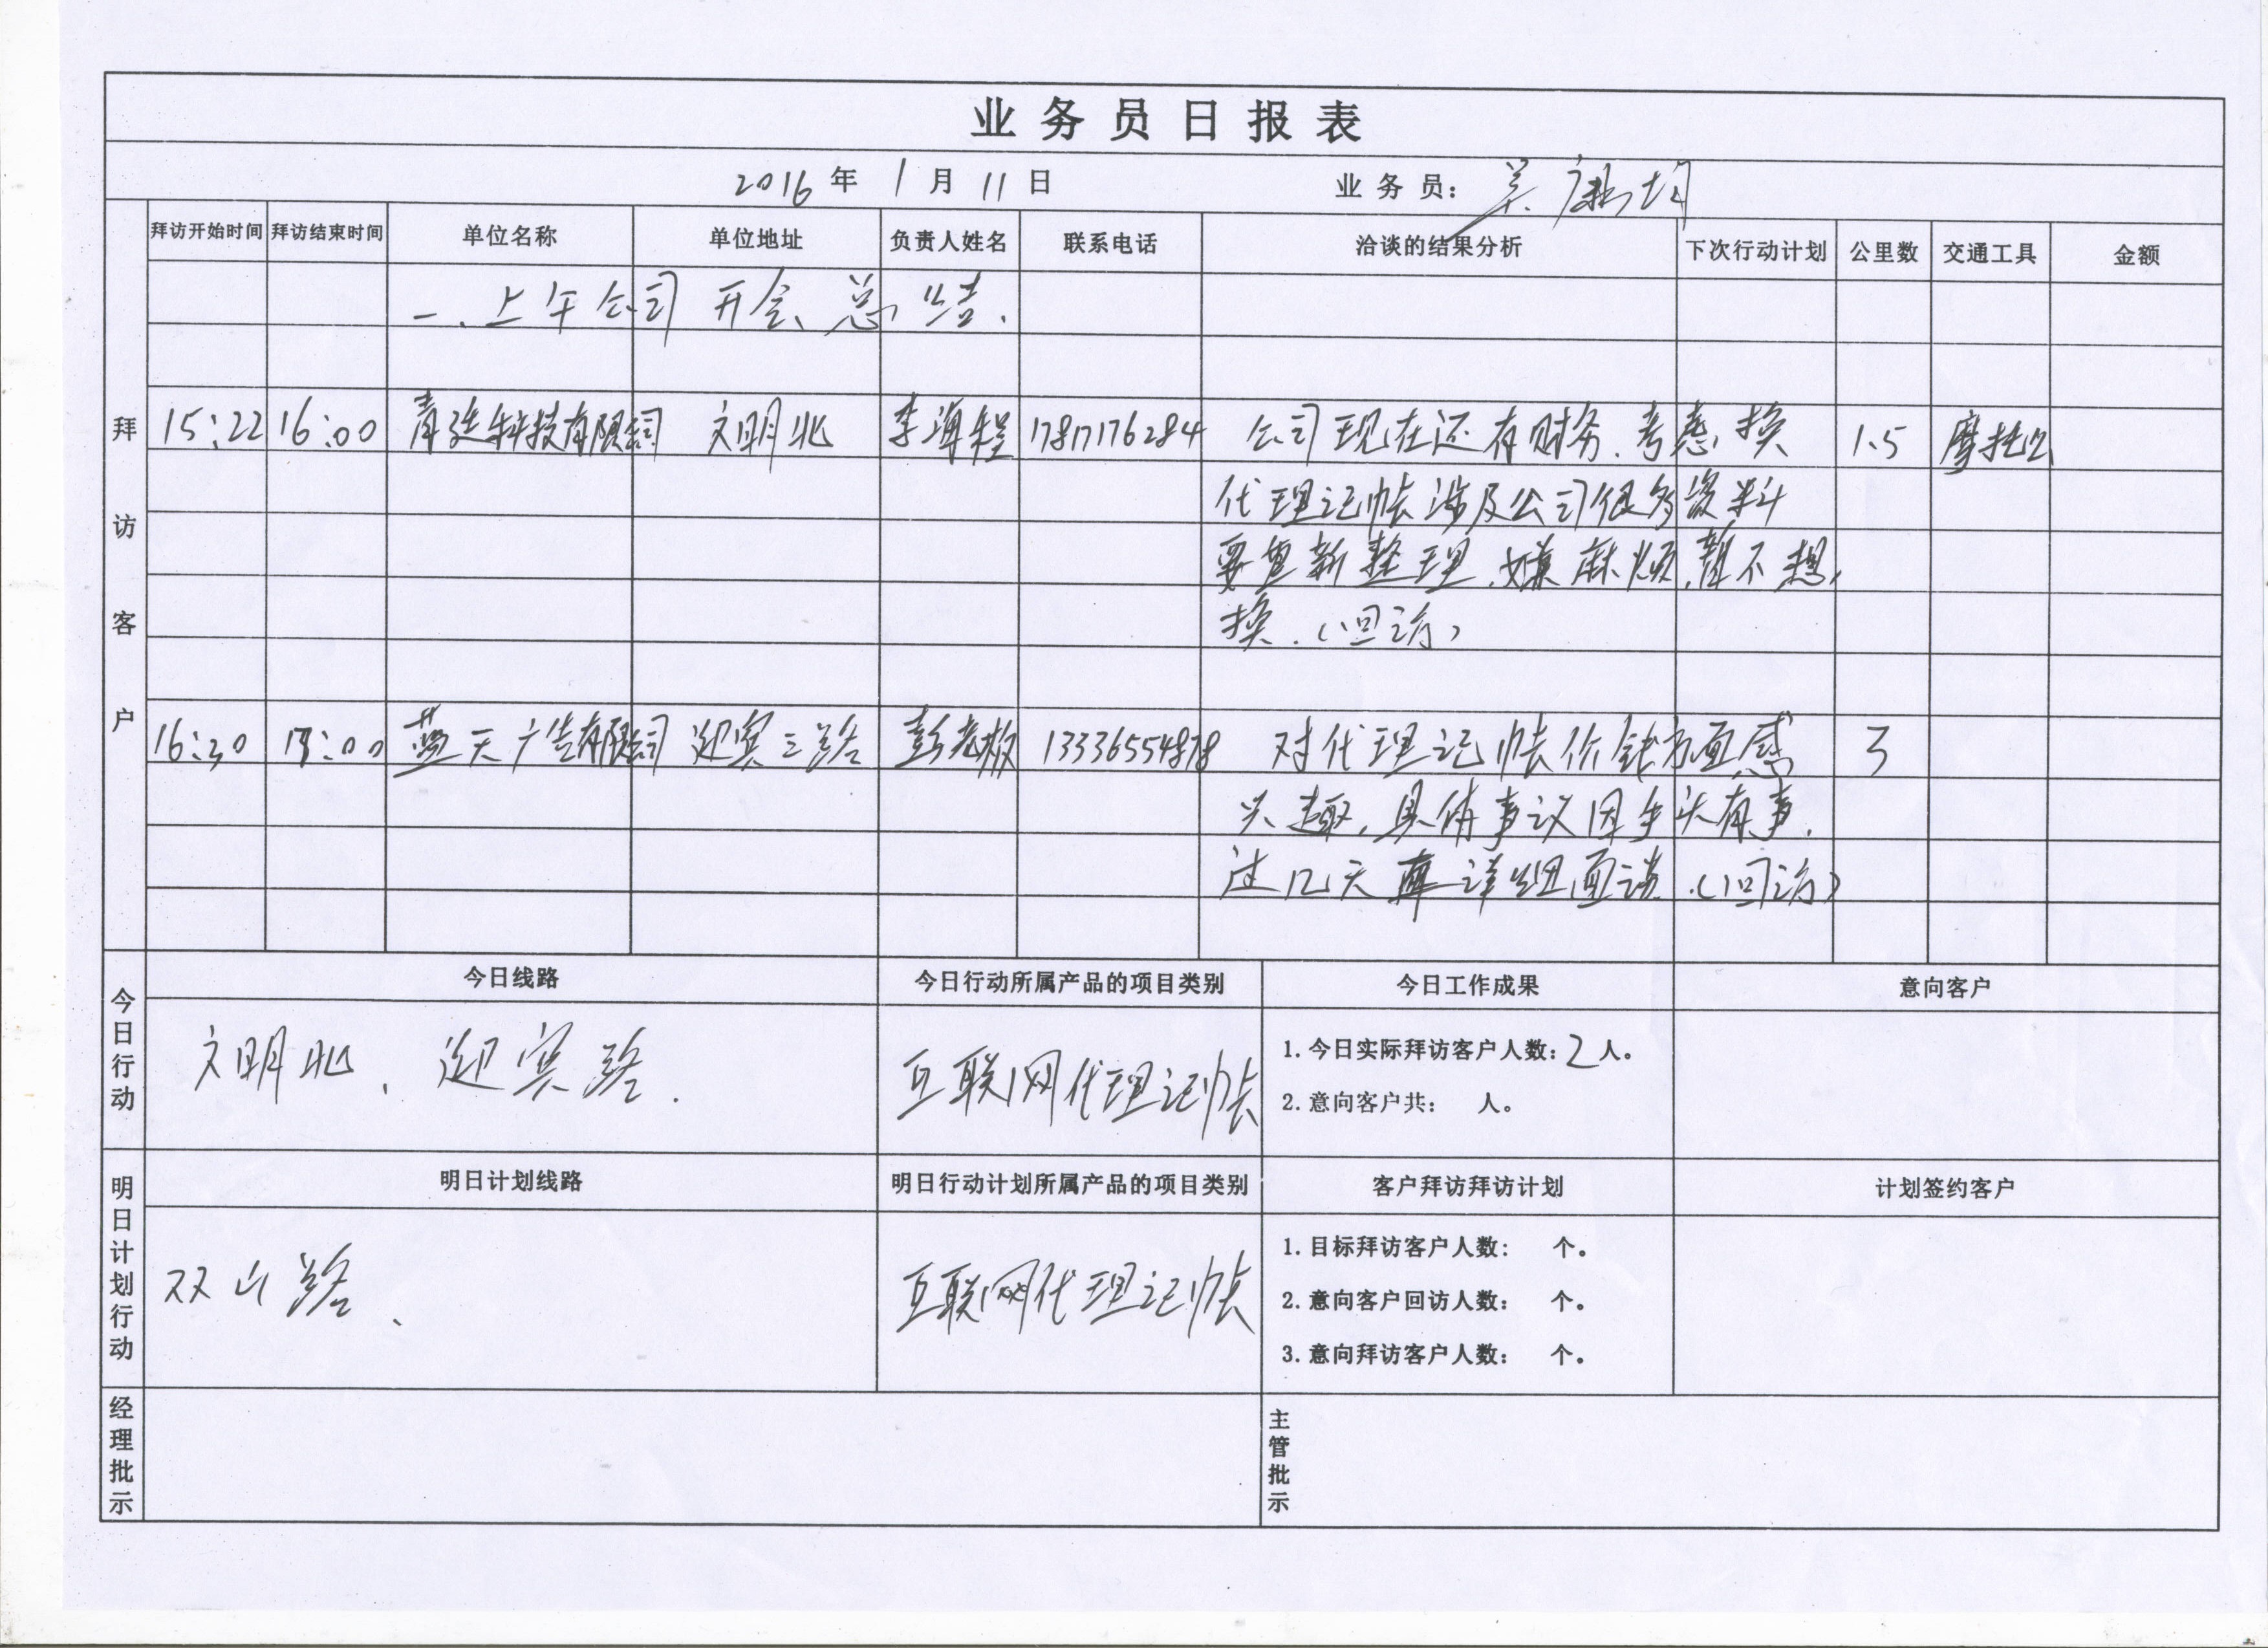 业务员日报表
2016年 1月 11日 业务员:
拜访客户
拜访开始时间 拜访结束时间 单位名称 单位地址 负责人姓名 联系电话 洽谈的结果分析 下次行动计划 公里数 交通工具 金额
一、上午公司开会、总结.
15:22 16:00 科技有限公司 文明北 李海程 17817176284 公司现在还有财务.考虑换 1.5 摩托
代理记帐涉及公司很多资料
要重新整理.嫌麻烦.暂不想
换.(回访)
16:30 17:00 蓝天广告有限公司 迎宾三路 彭老板 13336554878 对代理记帐价钱方面感 3
兴趣,具体事议因手头有事.
过几天再详细面谈.(回访)
今日行动
今日线路 今日行动所属产品的项目类别 今日工作成果 意向客户
文明北、迎宾路. 互联网代理记帐
1.今日实际拜访客户人数:2人。
2.意向客户共: 人。
明日计划行动
明日计划线路 明日行动计划所属产品的项目类别 客户拜访拜访计划 计划签约客户
双山路、 互联网代理记帐
1.目标拜访客户人数: 个。
2.意向客户回访人数: 个。
3.意向拜访客户人数: 个。
经理批示 主管批示